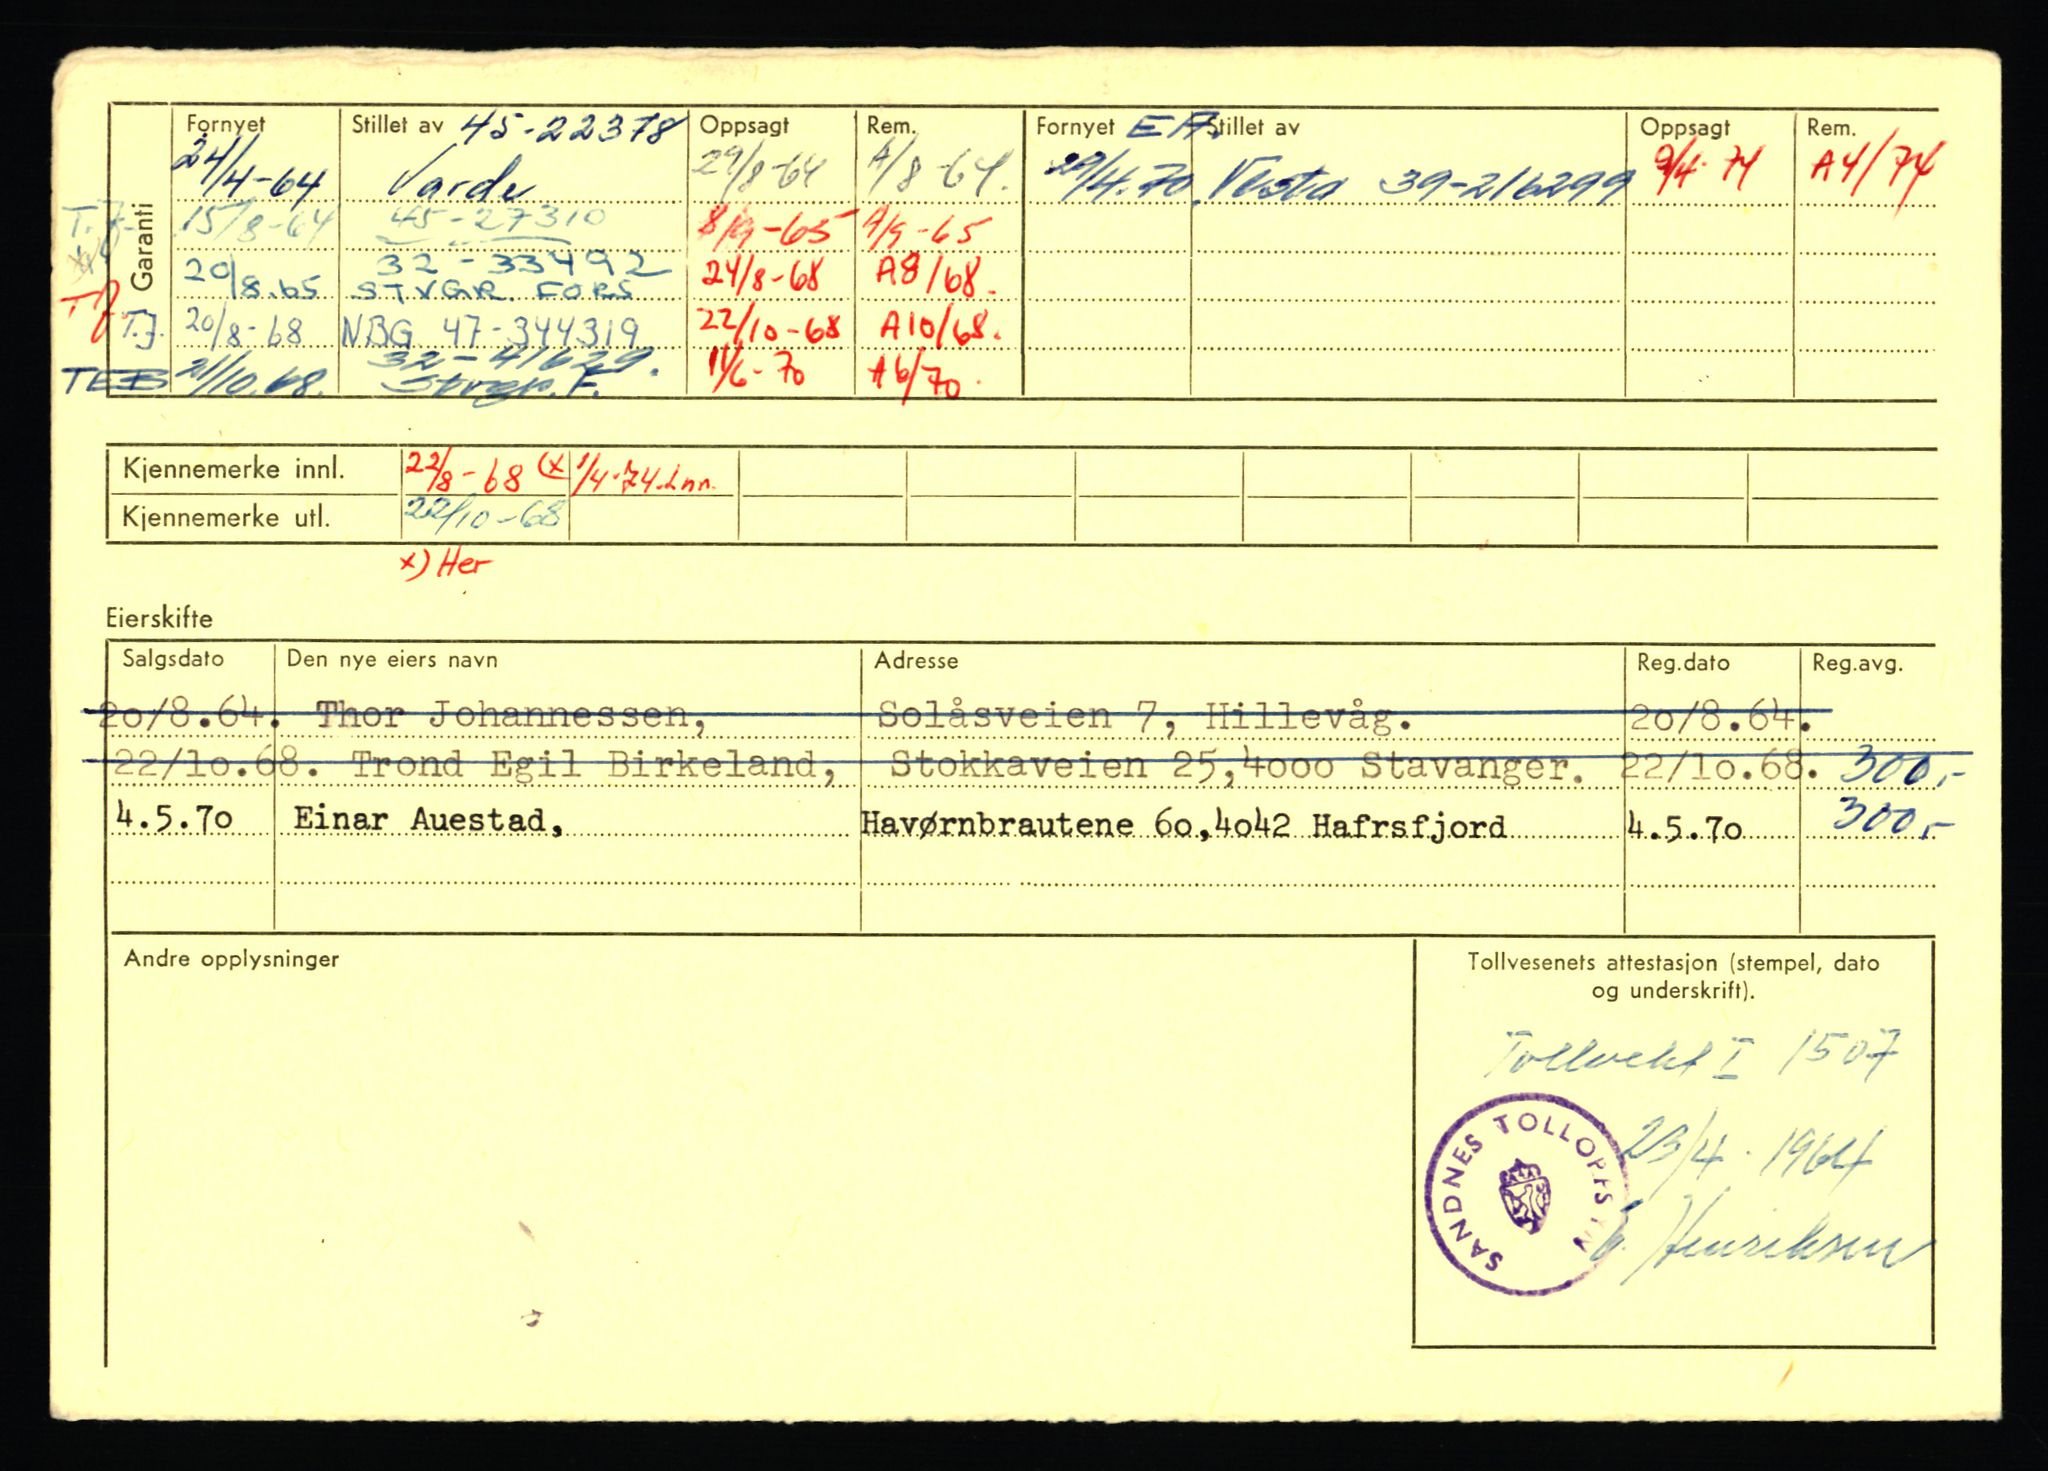 Garanti
Fornyet Stillet av 45-22378 Oppsagt Rem. Fornyet EA. Stillet av Oppsagt Rem.
24/4-64 Varde 29/8-64 A/8-64. 29/4.70. Vesta 39-216299 9/4-74 A4/74
T.J. 15/8-64 45-27310 8/9-65 A/9-65
20/8.65 32-33492 STVGR. FORS 24/8-68 A8/68.
T.J. 20/8-68 NBG 47-344319 22/10-68 A10/68.
TEB 21/10.68. 32-41629. Stvgr. F. 11/6-70 A6/70.
Kjennemerke innl. 22/8-68 (x 1/4-74. Inn.
Kjennemerke utl. 22/10-68
x) Her
Eierskifte
Salgsdato Den nye eiers navn Adresse Reg.dato Reg.avg.
20/8.64. Thor Johannessen, Solåsveien 7, Hillevåg. 20/8.64.
22/10.68. Trond Egil Birkeland, Stokkaveien 25,4000 Stavanger. 22/10.68. 300,-
4.5.70 Einar Auestad, Havørnbrautene 60,4042 Hafrsfjord 4.5.70 300,-
Andre opplysninger
Tollvesenets attestasjon (stempel, dato
og underskrift).
Tollvekt I 1507
23/4. 1964
SANDNES TOLLOPPSYN
Henriksen